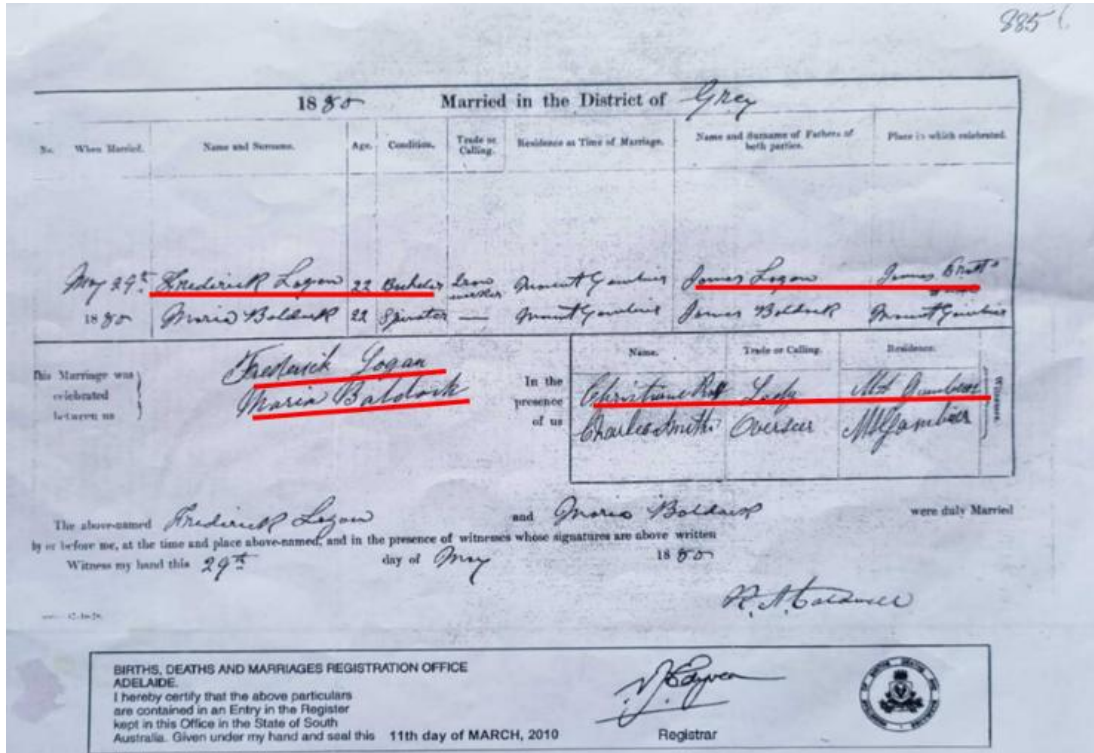 885
1880 Married in the District of Grey
No. When Married. Name and Surname. Age. Condition. Trade or Calling. Residence at Time of Marriage. Name and Surname of Fathers of both parties. Place in which celebrated.
May 29th Frederick Logan 22 Bachelor Mount Gambier James Logan James
1880 Maria Baldock 22 Spinster — Mount Gambier James Baldock Mount Gambier
This Marriage was celebrated between us
Frederick Logan
Maria Baldock
In the presence of us
Name. Trade or Calling. Residence.
Christiane Lady Mt Gambier
Charles Smith Overseer Mt Gambier
Witnesses.
The above-named Frederick Logan and Maria Baldock were duly Married
by or before me, at the time and place above-named, and in the presence of witnesses whose signatures are above written
Witness my hand this 29th day of May 1880
BIRTHS, DEATHS AND MARRIAGES REGISTRATION OFFICE
ADELAIDE.
I hereby certify that the above particulars
are contained in an Entry in the Register
kept in this Office in the State of South
Australia. Given under my hand and seal this 11th day of MARCH, 2010
Registrar